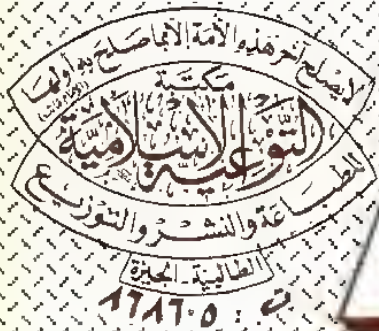 لا يصلح آخر هذه الأمة إلا بما صلح به أولها
مكتبة
التوعية الإسلامية
للطباعة والنشر والتوزيع
الطالبية - الجيزة
ت : ٨٦٨٦٠٥